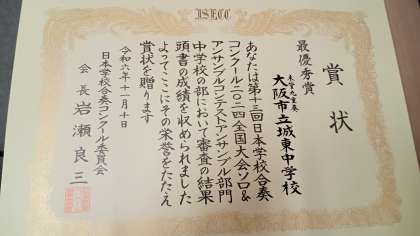 ISECC
賞状
最優秀賞
木管九重奏
大阪市立城東中学校
あなたは第十三回日本学校合奏
コンクール二〇二四全国大会ソロ&
アンサンブルコンテストアンサンブル部門
中学校の部において審査の結果
頭書の成績を収められました
よってここにその栄誉をたたえ
賞状を贈ります
令和六年十一月十日
日本学校合奏コンクール委員会
会長 岩瀬良三